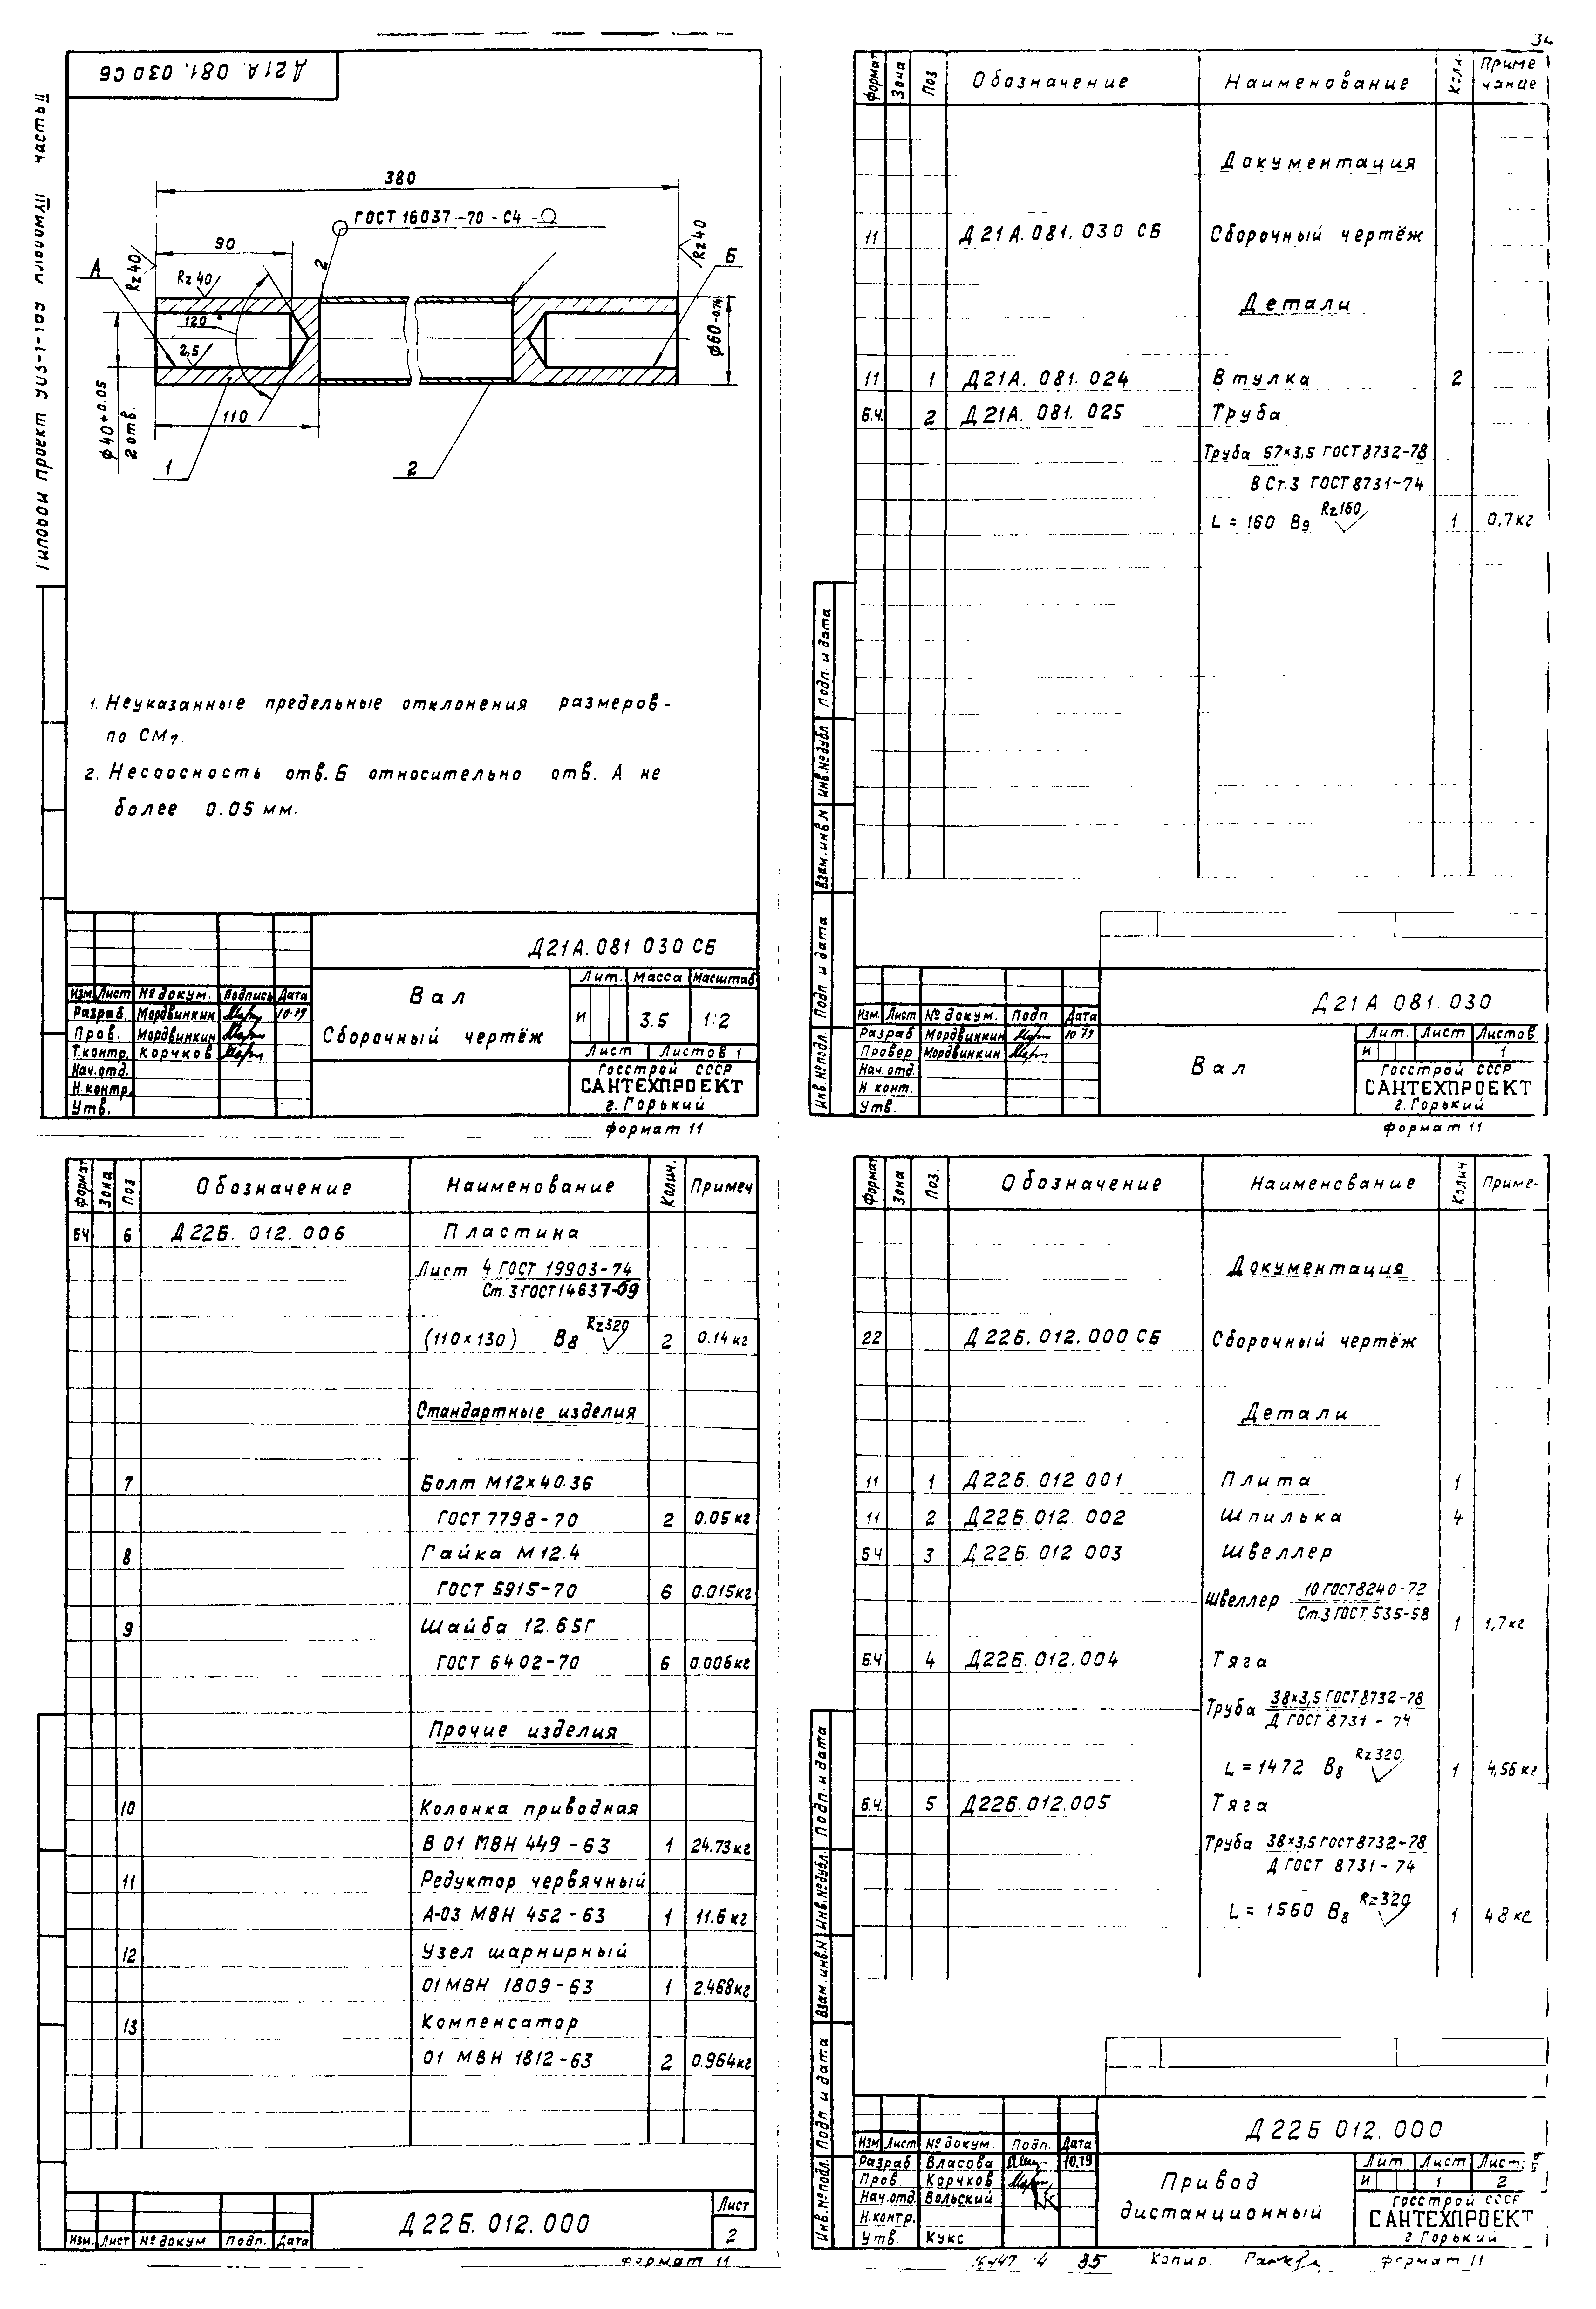 34
Д21А. 081. 030 СБ
Типовой проект 903-1-189 Альбом VIII часть II
380
ГОСТ 16037-70-С4
90
2
Rz40
Rz40
Rz40
А
Б
120°
2,5
ф60-0.74
ф40+0.05
2 отв.
110
1
2
1. Неуказанные предельные отклонения размеров-
по СМ7.
2. Несоосность отв. Б относительно отв. А не
более 0.05 мм.
Д21А.081.030 СБ
Изм. Лист № докум. Подпись Дата
Разраб. Мордвинкин 10.79
Пров. Мордвинкин
Т.контр. Корчков
Нач.отд.
Н.контр.
Утв.
Вал
Сборочный чертёж
Лит. Масса Масштаб
И 3.5 1:2
Лист Листов 1
Госстрой СССР
САНТЕХПРОЕКТ
г. Горький
формат 11
Формат Зона Поз Обозначение Наименование Кол. Приме
чание
Документация
11 Д21А.081.030 СБ Сборочный чертёж
Детали
11 1 Д21А. 081. 024 Втулка 2
Б.Ч. 2 Д21А. 081. 025 Труба
Труба 57×3,5 ГОСТ 8732-78
В Ст.3 ГОСТ 8731-74
L = 160 В9 Rz160 1 0,7кг
Подп. и дата
Инв.№ дубл
Взам. инв.№
Подп и дата
Инв.№ подл.
Д21А 081.030
Изм. Лист № докум. Подп Дата
Разраб Мордвинкин 10.79
Провер Мордвинкин
Нач.отд.
Н конт.
Утв.
Вал
Лит. Лист Листов
И 1
Госстрой СССР
САНТЕХПРОЕКТ
г. Горький
формат 11
Формат Зона Поз Обозначение Наименование Колич. Примеч
БЧ 6 Д22Б. 012. 006 Пластина
Лист 4 ГОСТ 19903-74
Ст.3 ГОСТ 14637-69
(110×130) В8 Rz320 2 0.14 кг
Стандартные изделия
7 Болт М12×40.36
ГОСТ 7798-70 2 0.05 кг
8 Гайка М12.4
ГОСТ 5915-70 6 0.015кг
9 Шайба 12.65Г
ГОСТ 6402-70 6 0.006кг
Прочие изделия
10 Колонка приводная
В 01 МВН 449-63 1 24.73кг
11 Редуктор червячный
А-03 МВН 452-63 1 11.6 кг
12 Узел шарнирный
01 МВН 1809-63 1 2.468кг
13 Компенсатор
01 МВН 1812-63 2 0.964кг
Изм. Лист № докум Подп. Дата
Д22Б. 012. 000
Лист
2
формат 11
Формат Зона Поз. Обозначение Наименование Колич Приме-
Документация
22 Д22Б.012.000 СБ Сборочный чертёж
Детали
11 1 Д22Б.012 001 Плита 1
11 2 Д22Б.012. 002 Шпилька 4
БЧ 3 Д22Б.012 003 Швеллер
Швеллер 10 ГОСТ 8240-72
Ст.3 ГОСТ 535-58 1 1,7кг
Б.Ч 4 Д22Б.012.004 Тяга
Труба 38×3,5 ГОСТ 8732-78
Д ГОСТ 8731-74
L = 1472 В8 Rz320 1 4,56 кг
Б.Ч. 5 Д22Б.012.005 Тяга
Труба 38×3,5 ГОСТ 8732-78
Д ГОСТ 8731-74
L = 1560 В8 Rz320 1 4.8 кг
Подп. и дата
Инв.№ дубл.
Взам. инв.№
Подп и дата
Инв.№ подл.
Д22Б 012.000
Изм Лист № докум. Подп. Дата
Разраб Власова 10.79
Пров Корчков
Нач.отд. Вольский
Н.контр.
Утв. Кукс
Привод
дистанционный
Лит Лист Листов
И 1 2
Госстрой СССР
САНТЕХПРОЕКТ
г Горький
35 Копир. формат 11